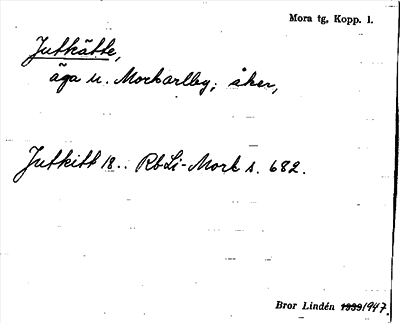 Mora tg, Kopp. l.
Jutkätte,
äga u. Morkarlby; åker,
Jutkitt 18.. RbLi-Mork s. 682.
Bror Lindén 1939/1947.